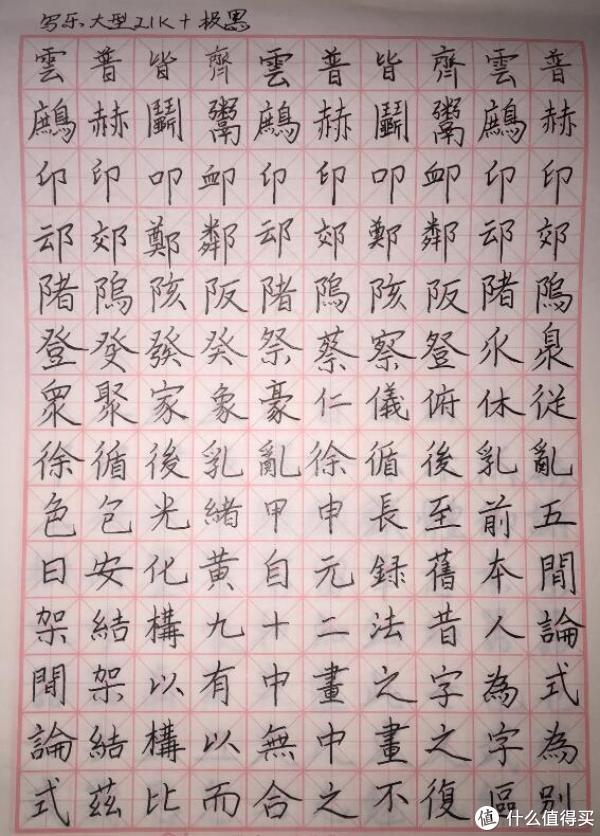 写乐大型21K+极黑
雲普皆齊雲普皆齊雲普
鷓赫鬭鬻鷓赫鬭鬻鷓赫
卬印叩卹卬印叩卹卬印
䢵郊鄭鄰䢵郊鄭鄰䢵郊
陼隖陔阪陼隖陔阪陼隖
登癹發癸祭蔡察豋乑臮
眾聚家象豪仁儀俯休従
徐循後乳亂徐循後乳亂
色包光緒甲申長至前五
日安化黄自元録舊本間
架結構九十二法昔人論
間架以有中畫之字為式
論結構以無中畫之字為
式茲比而合之不復區別
值 什么值得买